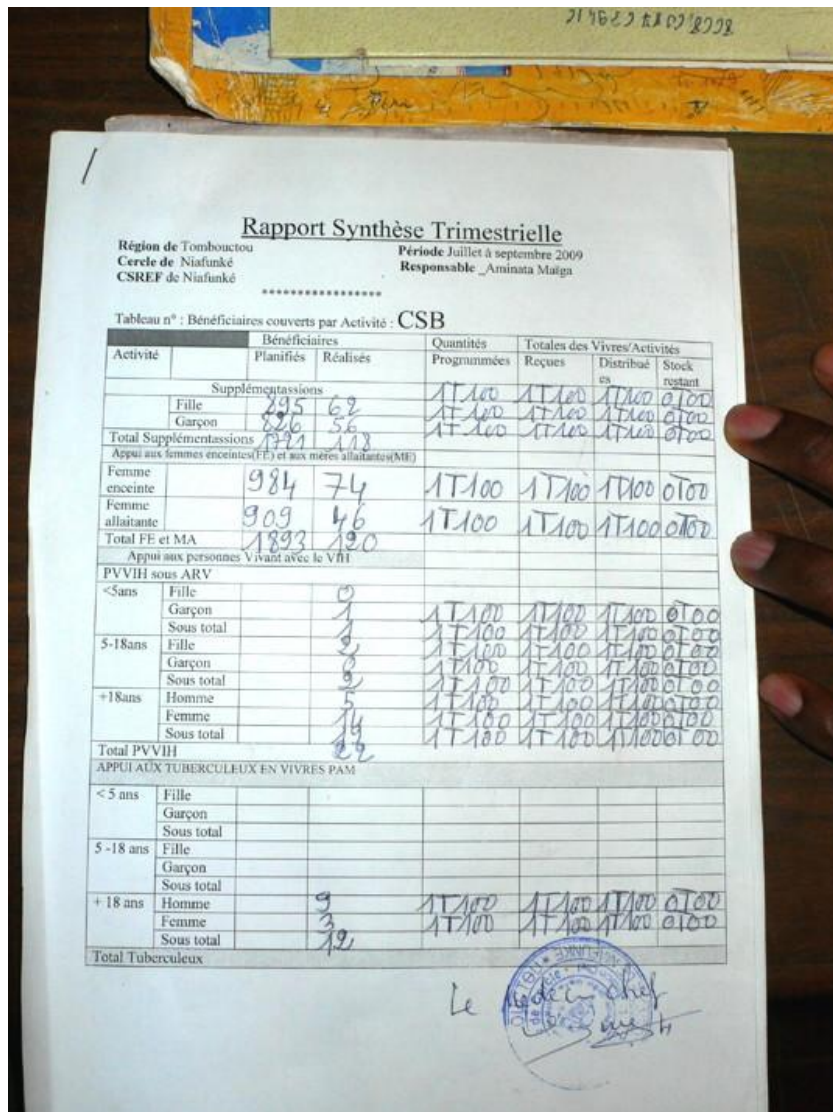 Rapport Synthèse Trimestrielle
Région de Tombouctou Période Juillet à septembre 2009
Cercle de Niafunké Responsable _Aminata Maïga
CSREF de Niafunké
*****************
Tableau n° : Bénéficiaires couverts par Activité : CSB
Bénéficiaires Quantités Totales des Vivres/Activités
Activité Planifiés Réalisés Programmées Reçues Distribué Stock
es restant
Supplémentassions 1T100 1T100 1T100 0T00
Fille 895 62 1T100 1T100 1T100 0T00
Garçon 826 56 1T100 1T100 1T100 0T00
Total Supplémentassions 1721 118
Appui aux femmes enceintes(FE) et aux mères allaitantes(ME)
Femme
enceinte 984 74 1T100 1T100 1T100 0T00
Femme
allaitante 909 46 1T100 1T100 1T100 0T00
Total FE et MA 1893 120
Appui aux personnes Vivant avec le VIH
PVVIH sous ARV
<5ans Fille 0
Garçon 1 1T100 1T100 1T100 0T00
Sous total 1 1T100 1T100 1T100 0T00
5-18ans Fille 2 1T100 1T100 1T100 0T00
Garçon 0 1T100 1T100 1T100 0T00
Sous total 2 1T100 1T100 1T100 0T00
+18ans Homme 5 1T100 1T100 1T100 0T00
Femme 14 1T100 1T100 1T100 0T00
Sous total 19 1T100 1T100 1T100 0T00
Total PVVIH 22
APPUI AUX TUBERCULEUX EN VIVRES PAM
< 5 ans Fille
Garçon
Sous total
5 -18 ans Fille
Garçon
Sous total
+ 18 ans Homme 9 1T100 1T100 1T100 0T00
Femme 3 1T100 1T100 1T100 0T00
Sous total 12
Total Tuberculeux
Le médecin chef